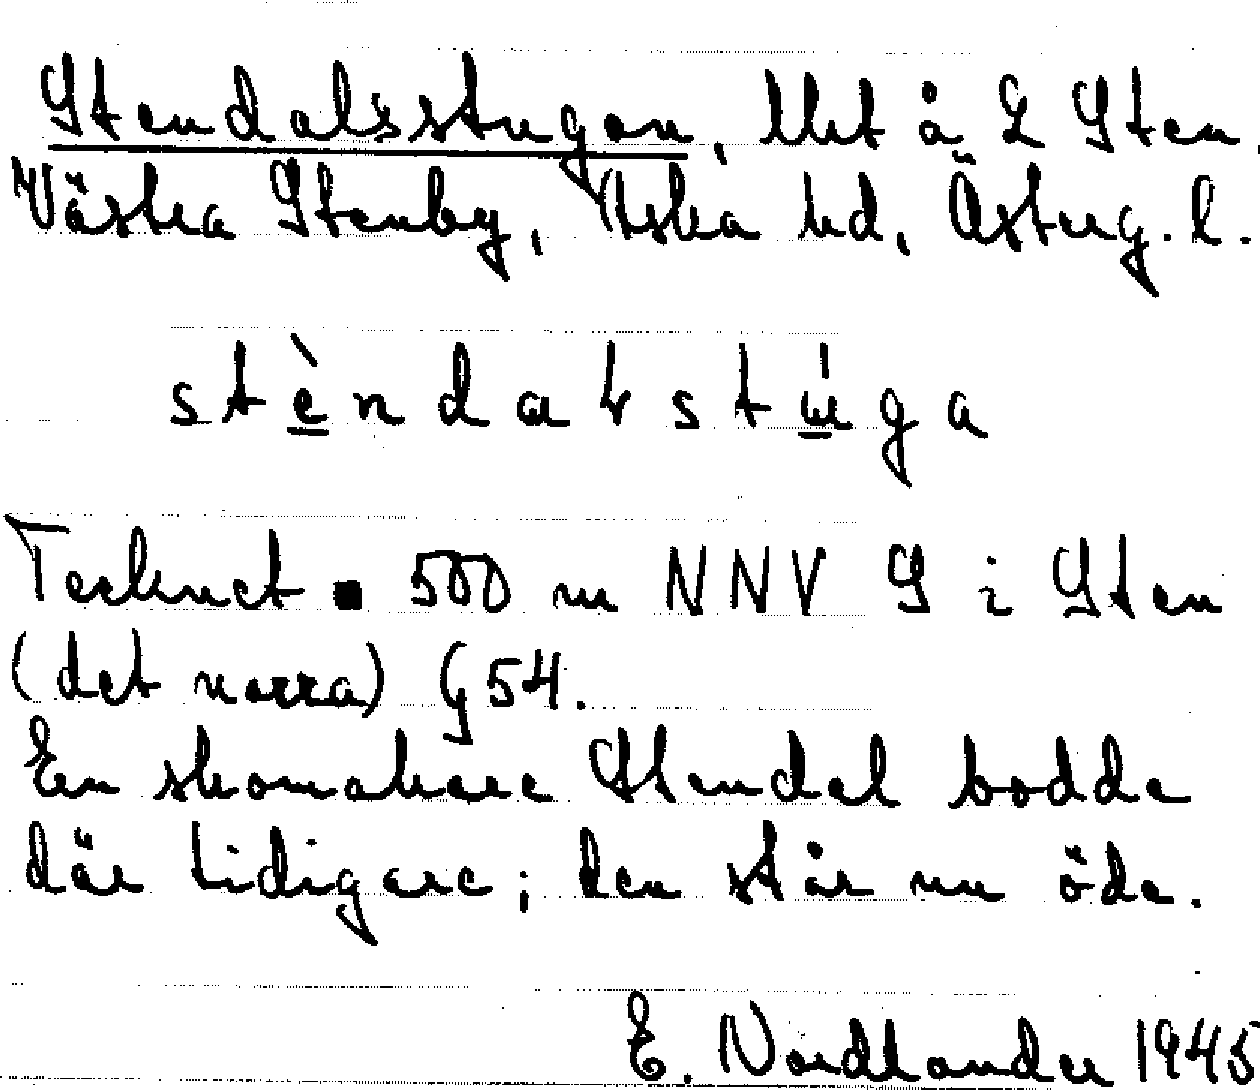 Stendalsstugan, lht å 2 Sten,
Västra Stenby, Aska hd, Österg. l.
stèndalstúga
Tecknet ▪ 500 m NNV S i Sten
(det norra) G 54.
En skomakare Stendal bodde
där tidigare; den står nu öde.
E. Nordlander 1945